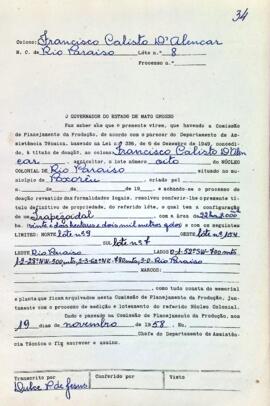 34
Colono: Francisco Calisto D'Alencar
N. C. de Rio Paraiso Lote n.º 8
Processo n.º
O GOVERNADOR DO ESTADO DE MATO GROSSO
Faz saber aos que o presente virem, que havendo a Comissão
de Planejamento da Produção, de acordo com o parecer do Departamento de As-
sistência Técnica, baseado na Lei n.º 336, de 6 de Dezembro de 1949, conceden-
do, à titulo de doação, ao colono Francisco Calisto D'Alen
car, agricultor, o lote número oito do NÚCLEO
COLONIAL DE Rio Paraiso situado no mu-
nicipio de Poxoréu criado pel
n.º de de de 19 , e achando-se o processo de
doação revestido das formalidades legais, resolveu conferir-lhe o presente ti-
tulo definitivo de propriedade, do referido lote, o qual tem a configuração
de um Trapezoidal com a área de 22 ha 2.000
(vinte e dois hectares e dois mil metros qdos) e com os seguintes
LIMITES: NORTE lote nº 9
SUL lote nº 7
LESTE Rio Paraiso LADOS
MARCOS:
como tudo consta do memorial
e planta que ficam arquivados nesta Comissão de Planejamento da Produção, jun-
tamente com o processo de medição e loteamento do referido Núcleo Colonial.
Dado e passado na Comissão de Planejamento da Produção, aos
19 dias de novembro de 1958. Eu,
Chefe do Departamento de As-
sistência Técnica o fiz escrever e assino.
Transcrito por Conferido por Visto
Dulce P. de Jesus